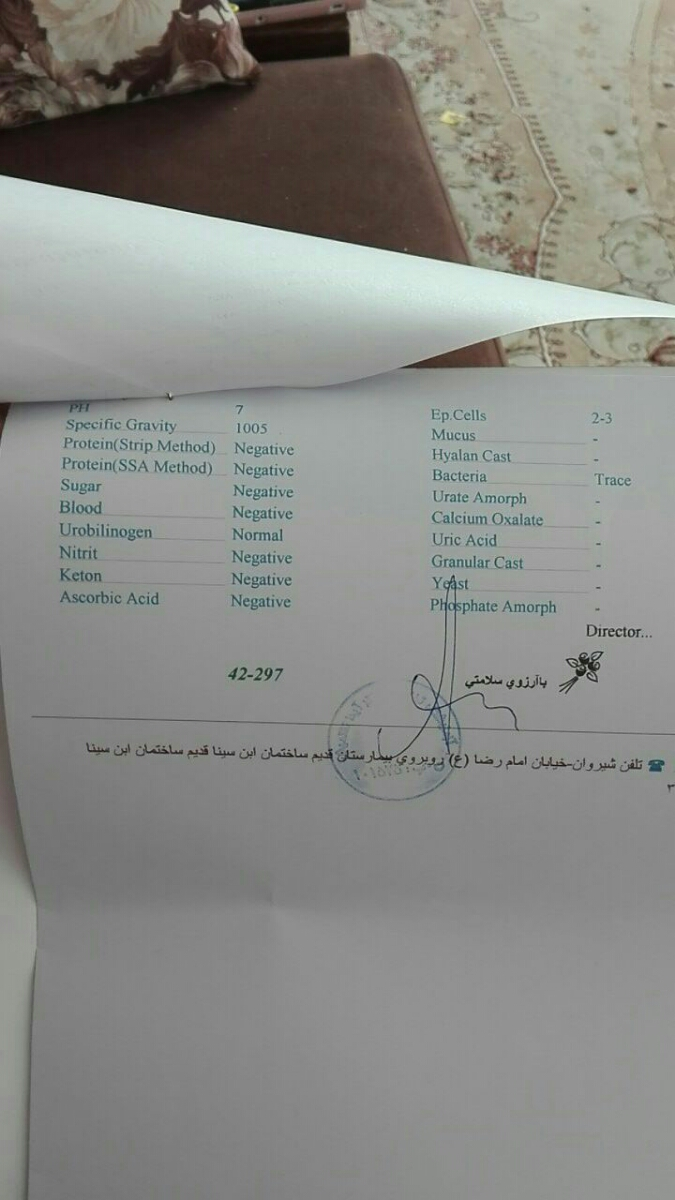 PH 7
Specific Gravity 1005
Protein(Strip Method) Negative
Protein(SSA Method) Negative
Sugar Negative
Blood Negative
Urobilinogen Normal
Nitrit Negative
Keton Negative
Ascorbic Acid Negative
Ep.Cells 2-3
Mucus -
Hyalan Cast -
Bacteria Trace
Urate Amorph -
Calcium Oxalate -
Uric Acid -
Granular Cast -
Yeast -
Phosphate Amorph -
Director...
42-297
باآرزوي سلامتي
تلفن شيروان-خيابان امام رضا (ع) روبروي بيمارستان قديم ساختمان ابن سينا قديم ساختمان ابن سينا
٣